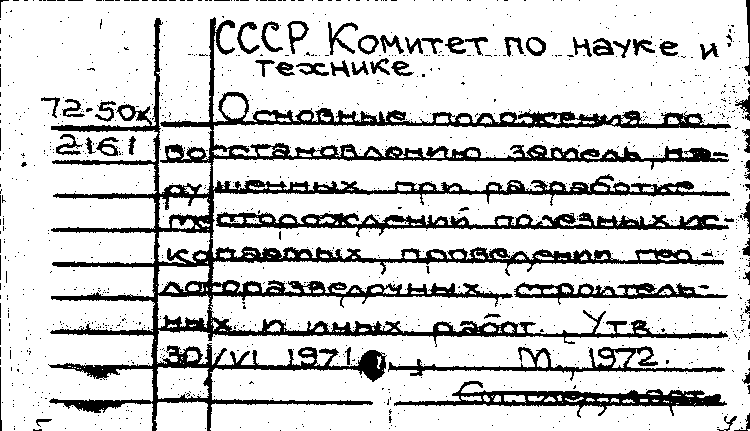 СССР Комитет по науке и
технике.
72-50к Основные положения по
2161 восстановлению земель, на-
рушенных при разработке
месторождений полезных ис-
копаемых, проведении гео-
логоразведочных, строитель-
ных и иных работ. Утв.
30/VI 1971 М., 1972.